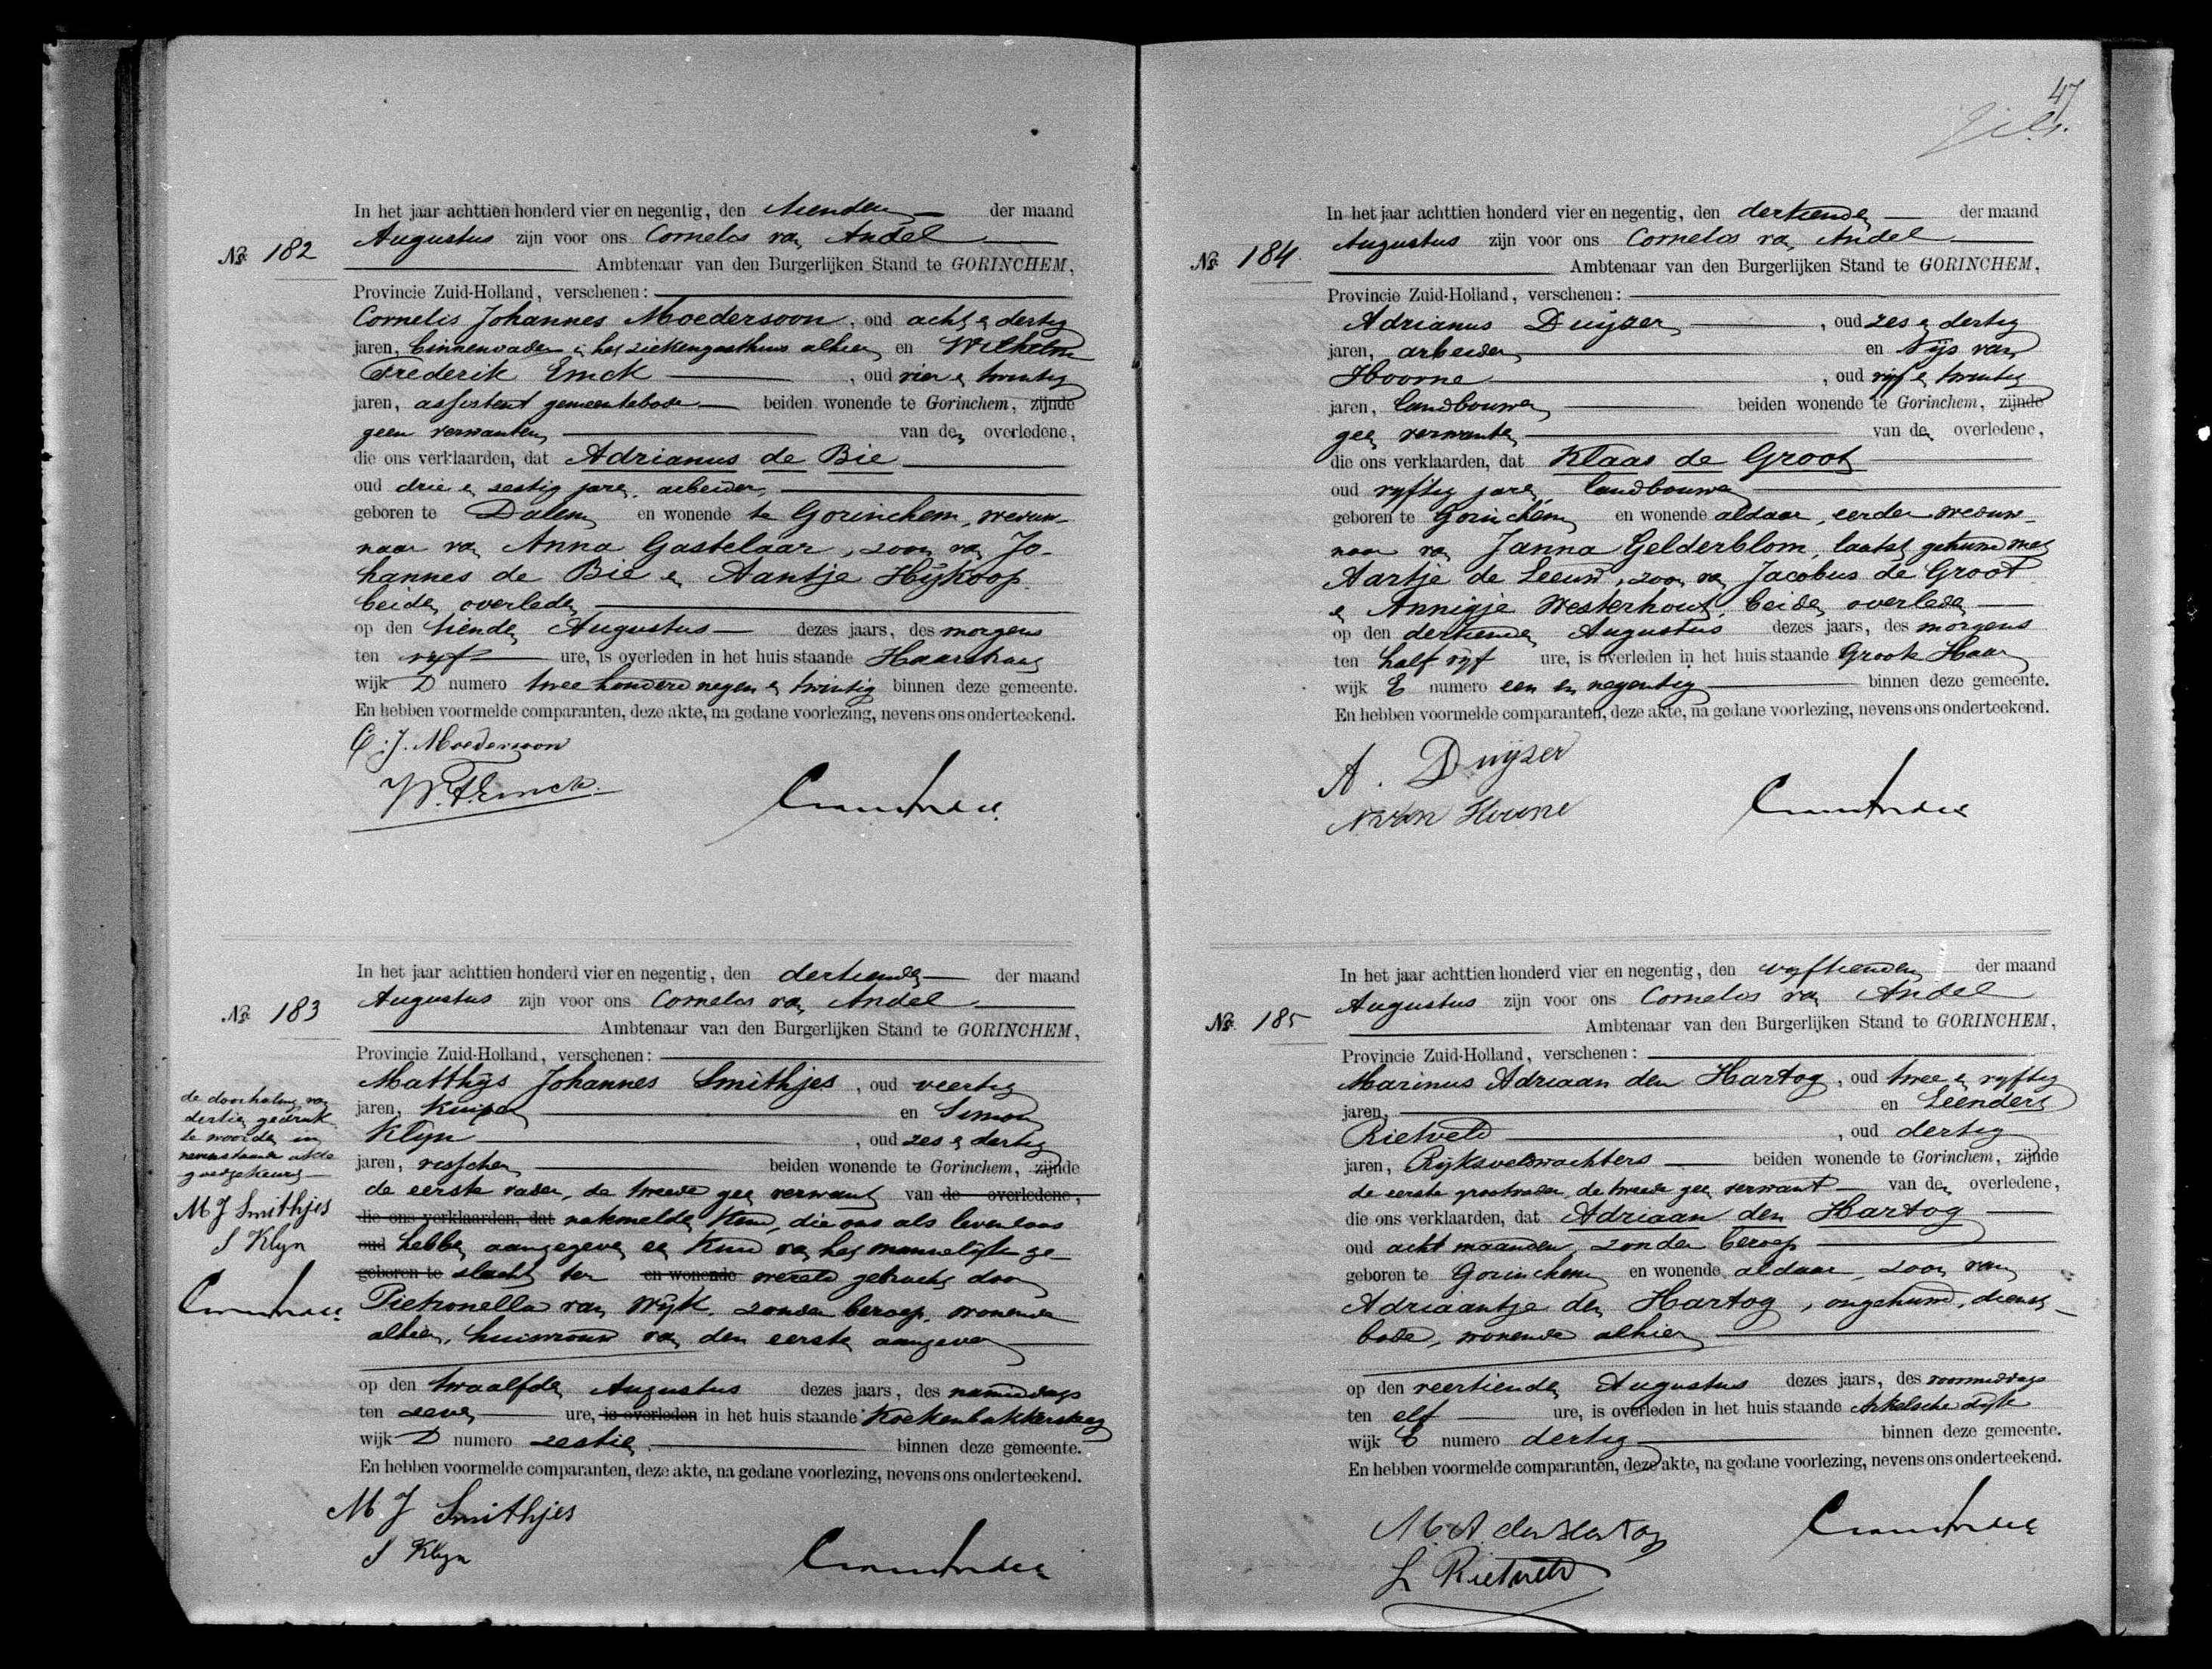 In het jaar achttien honderd vier en negentig, den tienden der maand
Augustus zijn voor ons Cornelis van Andel
Nº 182
Ambtenaar van den Burgerlijken Stand te GORINCHEM,
Provincie Zuid-Holland, verschenen:
Cornelis Johannes Moedersoon, oud acht en dertig
jaren, binnenvader in het ziekengasthuis alhier en Wilhelm
Frederik Emck, oud vier en twintig
jaren, assistent gemeentebode beiden wonende te Gorinchem, zijnde
geen verwanten van den overledene,
die ons verklaarden, dat Adrianus de Bie
oud drie en zestig jaren, arbeider,
geboren te Dalem en wonende te Gorinchem, weduw-
naar van Anna Gastelaar, zoon van Jo-
hannes de Bie en Aantje Hijkoop
beiden overleden
op den tienden Augustus dezes jaars, des morgens
ten vijf ure, is overleden in het huis staande Haarstraat
wijk D numero twee honderd negen en twintig binnen deze gemeente.
En hebben voormelde comparanten, deze akte, na gedane voorlezing, nevens ons onderteekend.
C. J. Moedersoon
W. F. Emck.
In het jaar achttien honderd vier en negentig, den dertienden der maand
Augustus zijn voor ons Cornelis van Andel
Nº 183
Ambtenaar van den Burgerlijken Stand te GORINCHEM,
Provincie Zuid-Holland, verschenen:
Matthijs Johannes Smithjes, oud veertig
jaren, kuiper en Simon
Klijn, oud zes en dertig
jaren, visscher beiden wonende te Gorinchem, zijnde
de eerste vader, de tweede geen verwant van de overledene,
die ons verklaarden, dat natemelden kind, die ons als levenloos
oud hebben aangegeven een kind van het mannelijk ge-
geboren te slacht ter en wonende wereld gebracht door
Pietronella van Wijk, zonder beroep, wonende
alhier, huisvrouw van den eersten aangever
op den twaalfden Augustus dezes jaars, des namiddags
ten zeven ure, is overleden in het huis staande Koekenbakkersteeg
wijk D numero zestien binnen deze gemeente.
En hebben voormelde comparanten, deze akte, na gedane voorlezing, nevens ons onderteekend.
M. J Smithjes
S Klijn
de doorhaling van
dertien gedruk-
te woorden in
nevenstaande akte
goedgekeurd
M J Smithjes
S Klijn
47
In het jaar achttien honderd vier en negentig, den dertienden der maand
Augustus zijn voor ons Cornelis van Andel
Nº 184
Ambtenaar van den Burgerlijken Stand te GORINCHEM,
Provincie Zuid-Holland, verschenen:
Adrianus Duijzer, oud zes en dertig
jaren, arbeider en Nijs van
Hoorne, oud vijf en twintig
jaren, landbouwer beiden wonende te Gorinchem, zijnde
geen verwanten van den overledene,
die ons verklaarden, dat Klaas de Groot
oud vijftig jaren, landbouwer
geboren te Gorinchem en wonende aldaar, eerder weduw-
naar van Janna Gelderblom, laatst gehuwd met
Aartje de Leeuw, zoon van Jacobus de Groot
en Annigje Westerhout, beiden overleden
op den dertienden Augustus dezes jaars, des morgens
ten half vijf ure, is overleden in het huis staande Groote Haar
wijk E numero een en negentig binnen deze gemeente.
En hebben voormelde comparanten, deze akte, na gedane voorlezing, nevens ons onderteekend.
A. Duijzer
N van Hoorne
In het jaar achttien honderd vier en negentig, den vijftienden der maand
Augustus zijn voor ons Cornelis van Andel
Nº 185
Ambtenaar van den Burgerlijken Stand te GORINCHEM,
Provincie Zuid-Holland, verschenen:
Marinus Adriaan den Hartog, oud twee en vijftig
jaren, en Leendert
Rietveld, oud dertig
jaren, Rijksveldwachters beiden wonende te Gorinchem, zijnde
de eerste grootvader, de tweede geen verwant van den overledene,
die ons verklaarden, dat Adriaan den Hartog
oud acht maanden, zonder beroep
geboren te Gorinchem en wonende aldaar, zoon van
Adriaantje den Hartog, ongehuwd, dienst-
bode, wonende alhier
op den veertienden Augustus dezes jaars, des voormiddags
ten elf ure, is overleden in het huis staande Arkelsche dijk
wijk E numero dertig binnen deze gemeente.
En hebben voormelde comparanten, deze akte, na gedane voorlezing, nevens ons onderteekend.
M. A. den Hartog
L Rietveld